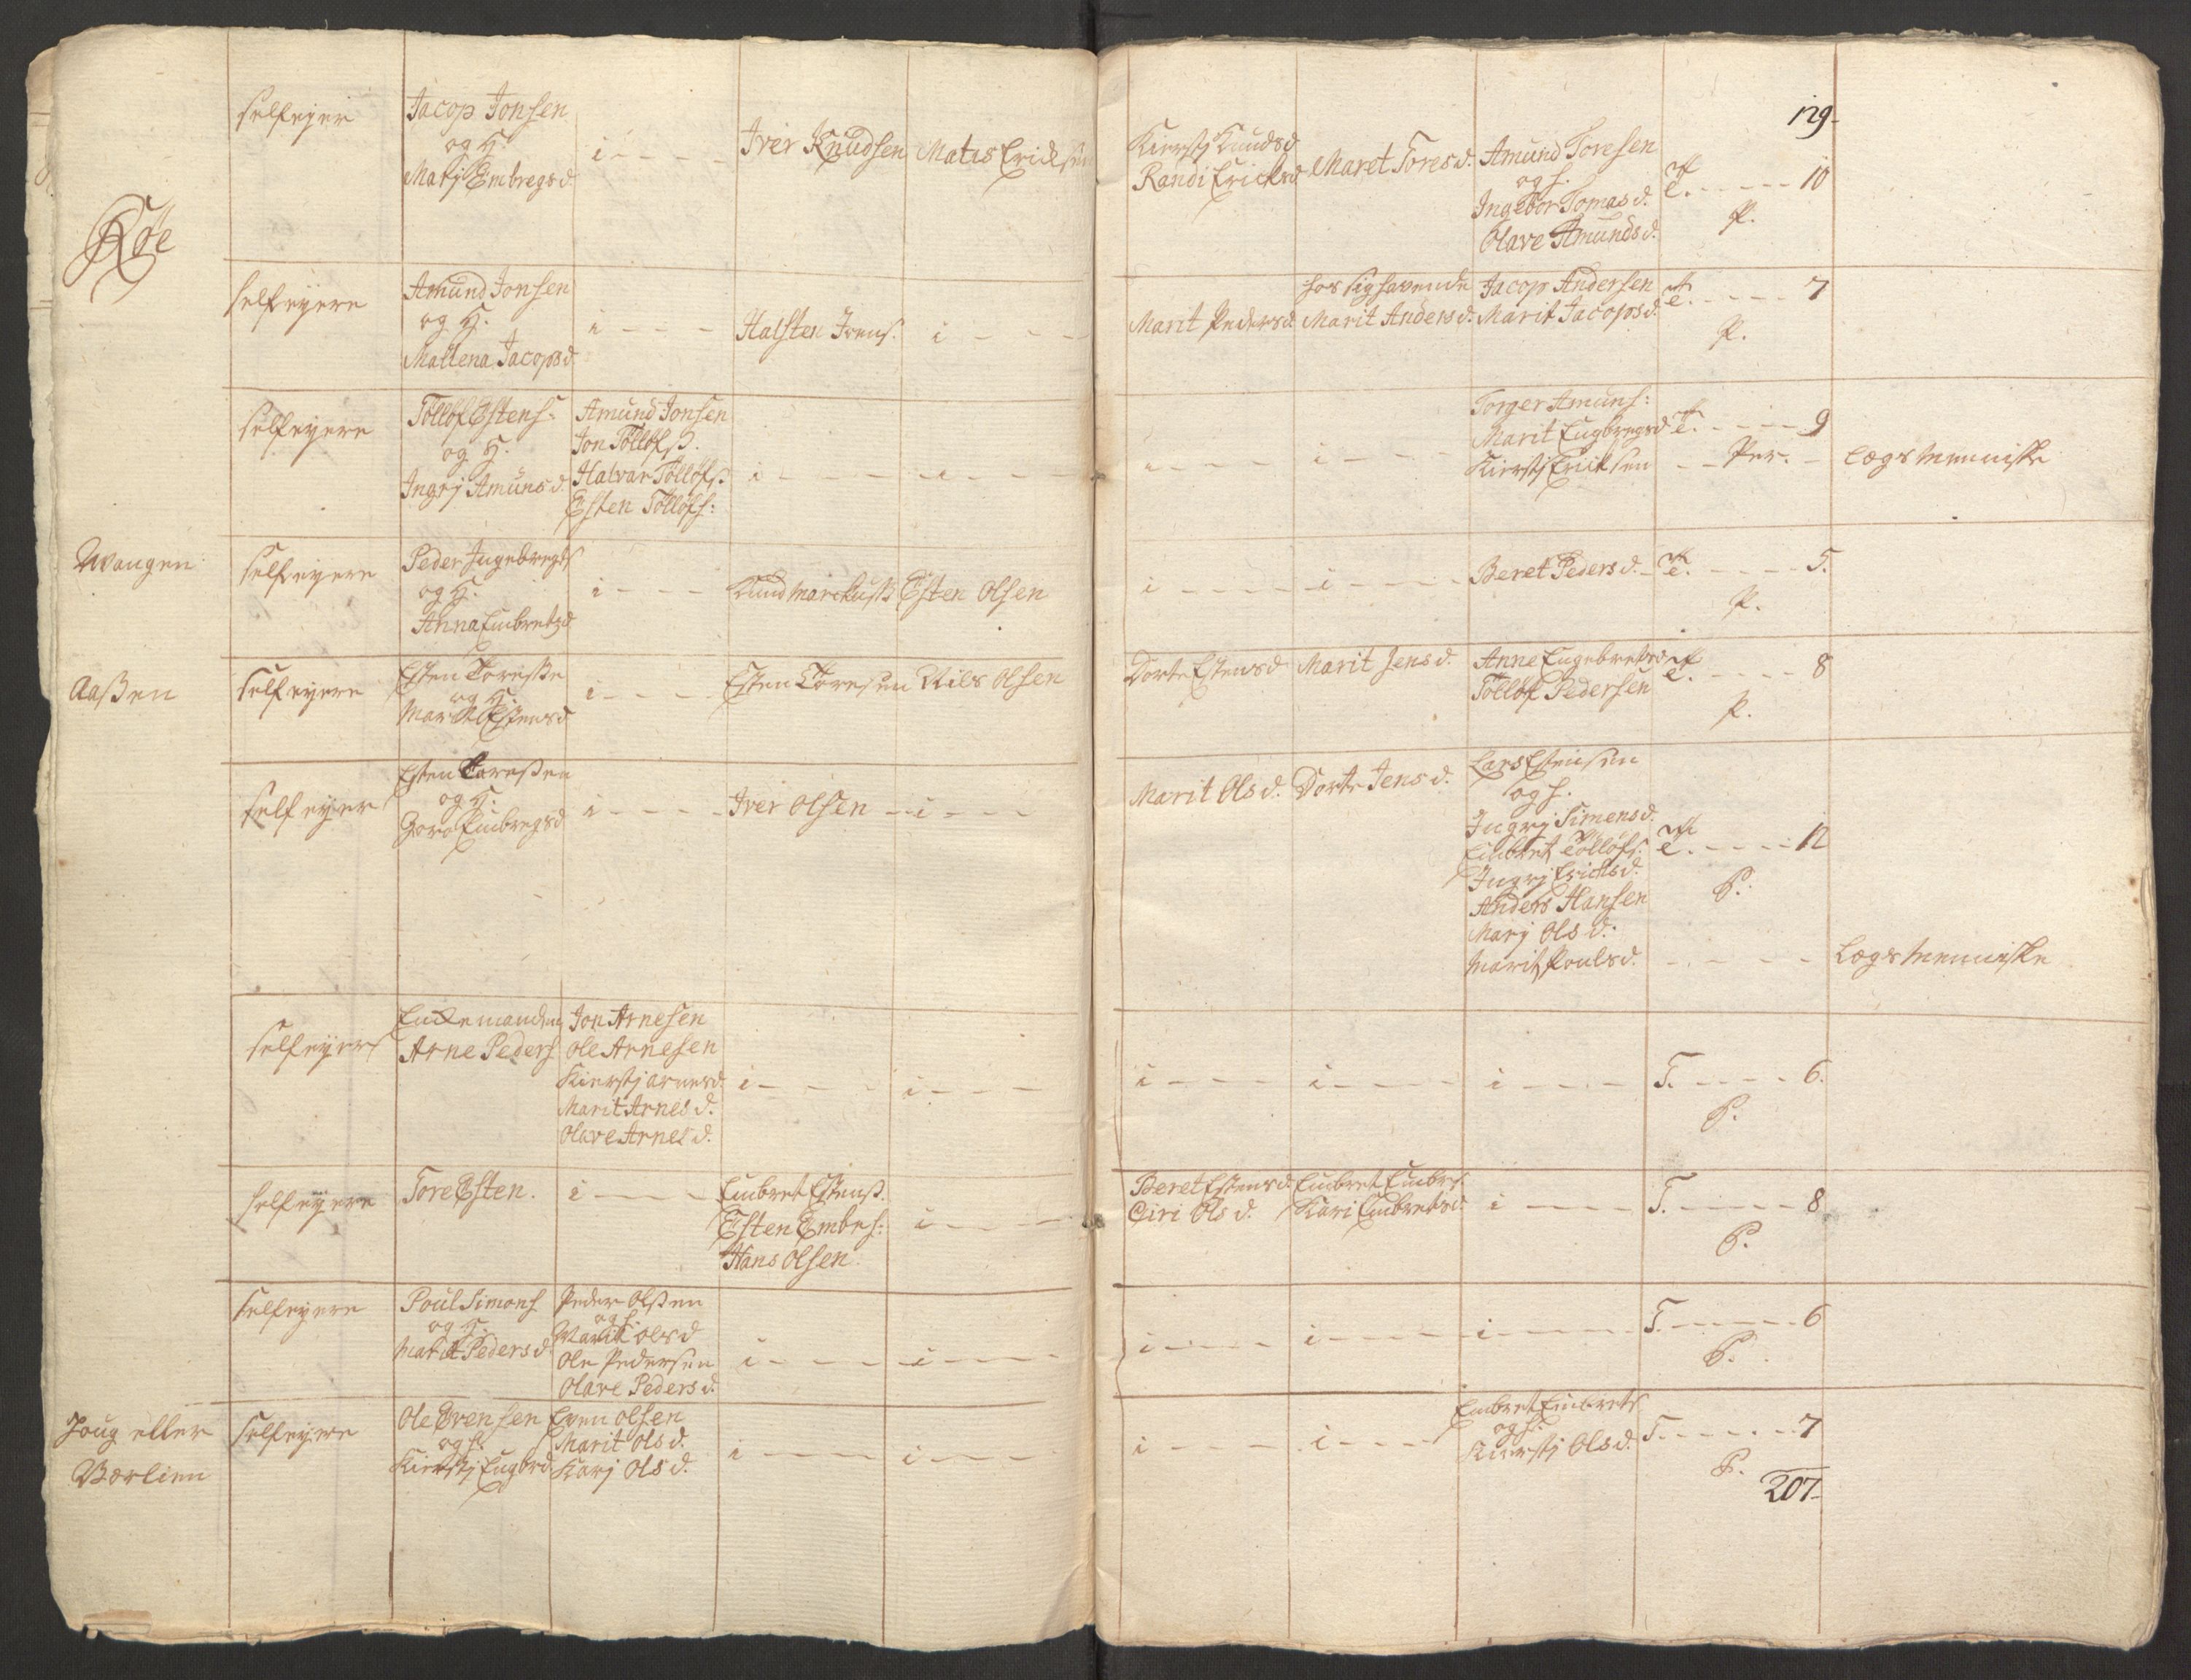 129
Røe
selfeyer
Jacop Jonsen
og H.
Marj Embregsd.
i - - - -
Iver Knudsen
Matis Ericksen
Kierstj Knudsd
Randi Ericksd
Maret Toresd.
Amund Toresen
og h.
Ingebor Tomasd.
Olave Amundsd.
10
P.
selfeyere
Amund Jonsen
og H.
Mallena Jacopsd
i - - -
Halsten Ivens.
i - - -
Marit Pedersd.
hos sig havende
Marit Andersd.
Jacop Andersen
Marit Jacopsd.
7
P.
selfeyere
Tollof Estens:
og H.
Ingrj Amunsd
Amund Jonsen
Jon Tollofs.
Halvar Tollofs.
Esten Tollofs:
i - - - -
i - - -
i - - - -
i - - - -
Torger Amuns:
Marit Eugbregsd
Kierstj Ericksen
9
- - Per. -
Lægs Menniske
Wangen
selfeyere
Peder Ingebregts
og H.
Anna Embretsd
i - - -
Knud Marckuss
Esten Olsen
i - - - -
i - - - -
Beret Pedersd.
5.
P.
Aassen
selfeyere
Esten Toresse
og H.
Marit Estensd
i - - - -
Esten Toresen
Nils Olsen
Dorte Estensd
Marit Jensd.
Anne Engebretsd
Tollof Pedersen
8
P.
selfeyer
Esten Toressen
og H.
Goro Embregsd
i - - - -
Iver Olsen
i - - -
Marit Olsd.
Dorte Jensd.
Lars Estensen
og h.
Ingrj Simensd.
Embret Tollofs.
Ingrj Ericksd.
Anders Hansen
Marj Olsd.
Marit Poulsd.
12
P.
Lægs Menniske
selfeyere
Enckemanden
Arne Peders
Jon Arnesen
Ole Arnesen
Kierstj Arnesd
Marit Arnesd.
Olave Arnesd.
i - - - -
i - - -
i - - - -
i - - - -
i - - - -
T. - - - - 6.
P.
selfeyere
Tore Esten.
i - - - -
Embret Estens.
Esten Embes:
Hans Olsen
i - - -
Beret Estensd.
Giri Olsd.
Embret Embrs.
Kari Embretsd.
i - - - -
T. - - - - 8
P.
selfeyere
Poul Simons
og H.
Marit Pedersd
Peder Olssen
og h.
Marit Olsd
Ole Pedersen
Olave Pedersd.
i - - - -
i - - - -
i - - - -
i - - - -
i - - - -
T. - - - - 6
P.
Joug eller
Bærlien
selfeyere
Ole Evensen
og h.
Kierstj Eugbrd
Even Olsen
Marit Olsd.
Karj Olsd.
i - - - -
i - - - -
i - - - -
i - - - -
Embret Embrets
og h.
Kierstj Olsd.
T. - - - - 7
P.
207